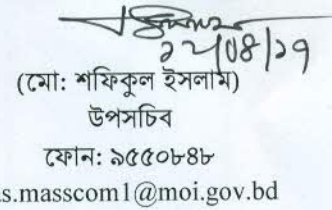 (মো: শফিকুল ইসলাম)
উপসচিব
ফোন: ৯৫৫০৮৪৮
s.masscom1@moi.gov.bd